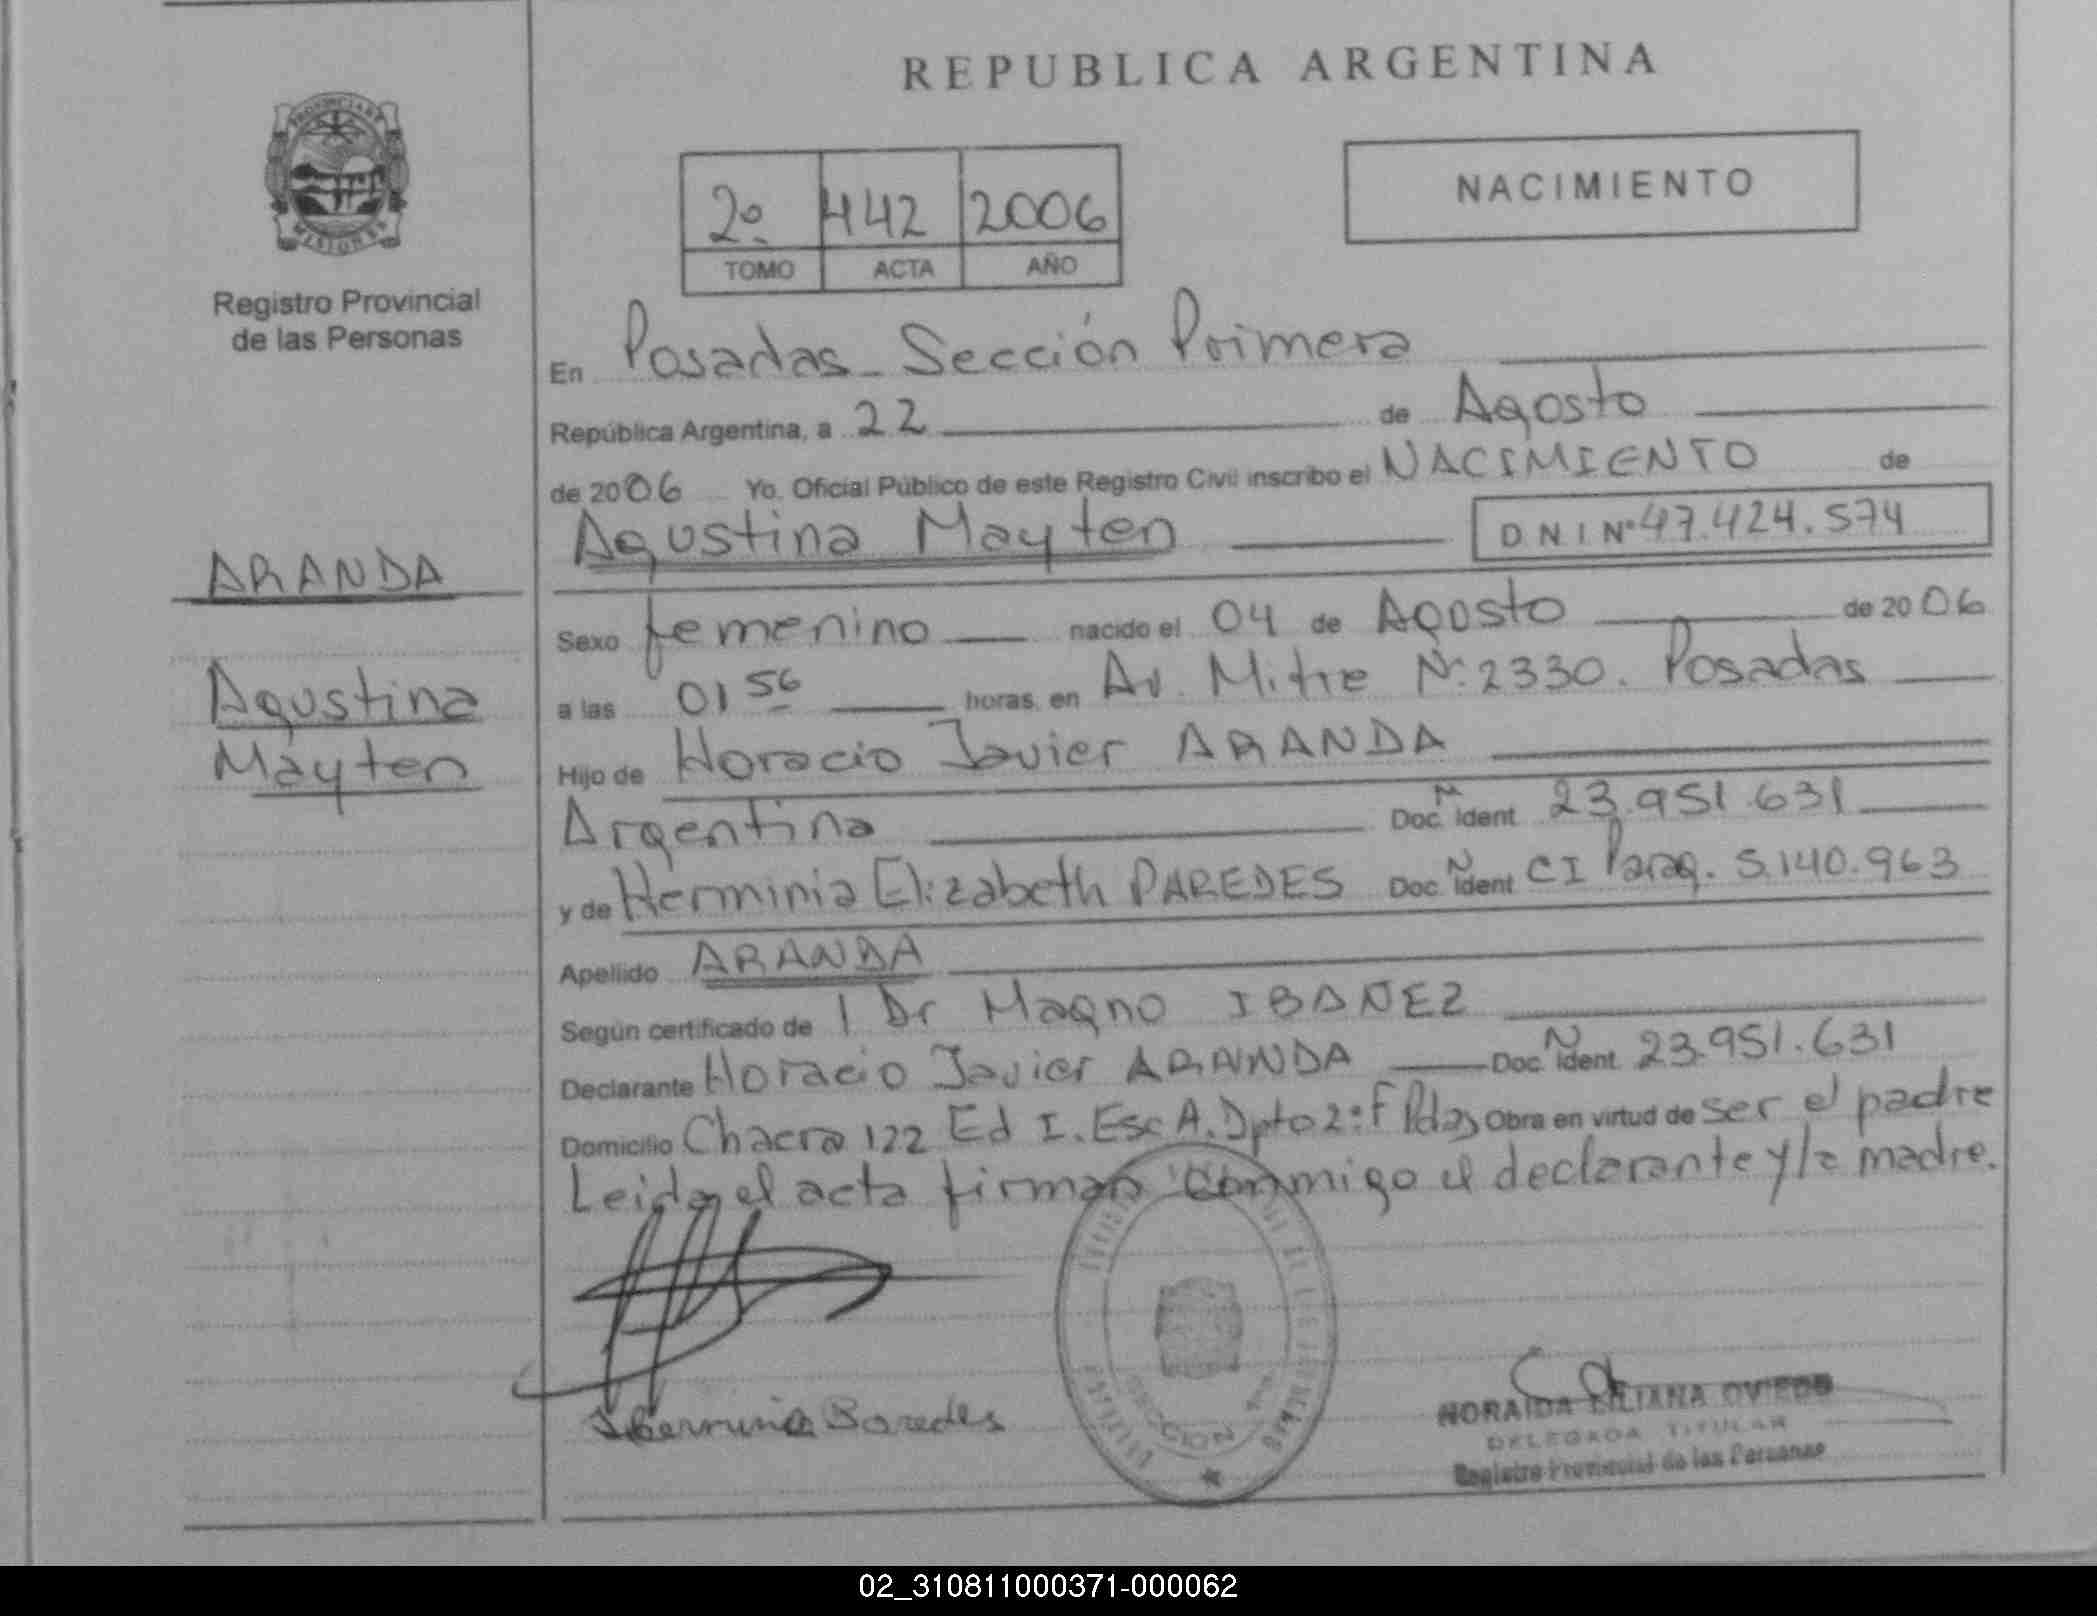 REPUBLICA ARGENTINA
PROVINCIA DE
MISIONES
Registro Provincial
de las Personas
2º 442 2006
TOMO ACTA AÑO
NACIMIENTO
En Posadas - Sección Primera
República Argentina, a 22 de Agosto
de 2006 Yo, Oficial Público de este Registro Civil inscribo el NACIMIENTO de
Agustina Mayten D N I Nº 47.424.574
ARANDA
Agustina
Mayten
Sexo femenino nacido el 04 de Agosto de 2006
a las 01 56 horas, en Av. Mitre Nº 2330. Posadas
Hijo de Horacio Javier ARANDA
Argentina Doc. Ident. 23.951.631
y de Herminia Elizabeth PAREDES Doc. Ident CI Parag. 5.140.963
Apellido ARANDA
Según certificado de 1 Dr Magno IBAÑEZ
Declarante Horacio Javier ARANDA Doc. Ident. 23.951.631
Domicilio Chacra 122 Ed I. Esc A. Dpto 2: F Pdas Obra en virtud de ser el padre
Leida el acta firman conmigo el declarante y la madre.
Herminia Paredes
SECCION
HORAIDA LILIANA OVIEDO
DELEGADA TITULAR
Registro Provincial de las Personas
02_310811000371-000062